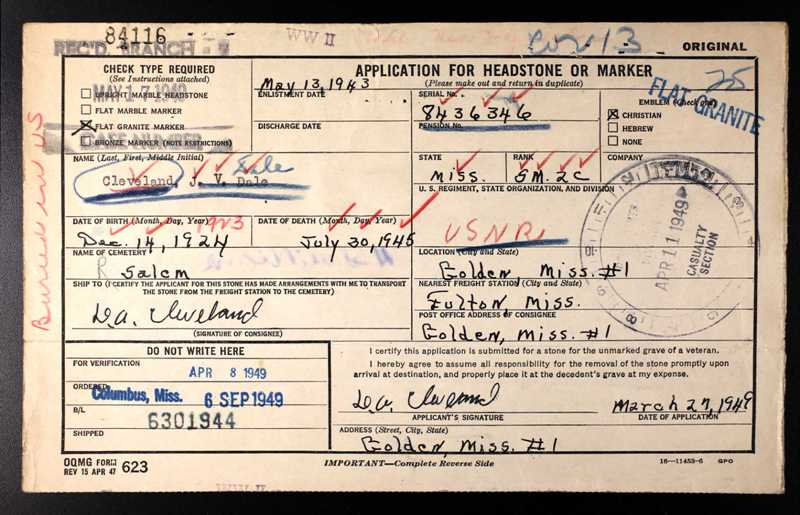 84116
REC'D. BRANCH
WW II
ORIGINAL
CHECK TYPE REQUIRED
(See Instructions attached)
MAY 17 1949
UPRIGHT MARBLE HEADSTONE
FLAT MARBLE MARKER
FLAT GRANITE MARKER
BRONZE MARKER (NOTE RESTRICTIONS)
CASE NUMBER
APPLICATION FOR HEADSTONE OR MARKER
(Please make out and return in duplicate)
May 13, 1943
ENLISTMENT DATE
DISCHARGE DATE
SERIAL No.
8436346
PENSION No.
25
FLAT GRANITE
EMBLEM (Check one)
CHRISTIAN
HEBREW
NONE
NAME (Last, First, Middle Initial)
Dale
Cleveland, J. V. Dale
STATE
Miss.
RANK
SM. 2C
COMPANY
U. S. REGIMENT, STATE ORGANIZATION, AND DIVISION
USNR
DATE OF BIRTH (Month, Day, Year)
1923
Dec. 14, 1924
DATE OF DEATH (Month, Day, Year)
July 30, 1945
APR 11 1949
CASUALTY SECTION
NAME OF CEMETERY
Salem
LOCATION (City and State)
Golden, Miss. #1
SHIP TO (I CERTIFY THE APPLICANT FOR THIS STONE HAS MADE ARRANGEMENTS WITH ME TO TRANSPORT
THE STONE FROM THE FREIGHT STATION TO THE CEMETERY)
NEAREST FREIGHT STATION (City and State)
Fulton, Miss.
D.A. Cleveland
(SIGNATURE OF CONSIGNEE)
POST OFFICE ADDRESS OF CONSIGNEE
Golden, Miss. #1
Buried in US
DO NOT WRITE HERE
FOR VERIFICATION
APR 8 1949
ORDERED
Columbus, Miss. 6 SEP 1949
B/L
6301944
SHIPPED
I certify this application is submitted for a stone for the unmarked grave of a veteran.
I hereby agree to assume all responsibility for the removal of the stone promptly upon
arrival at destination, and properly place it at the decedent's grave at my expense.
D.A. Cleveland
March 27, 1949
APPLICANT'S SIGNATURE
DATE OF APPLICATION
ADDRESS (Street, City, State)
Golden, Miss. #1
OQMG FORM
REV 15 APR 47
623
IMPORTANT—Complete Reverse Side
16—11453-6 GPO
WW II